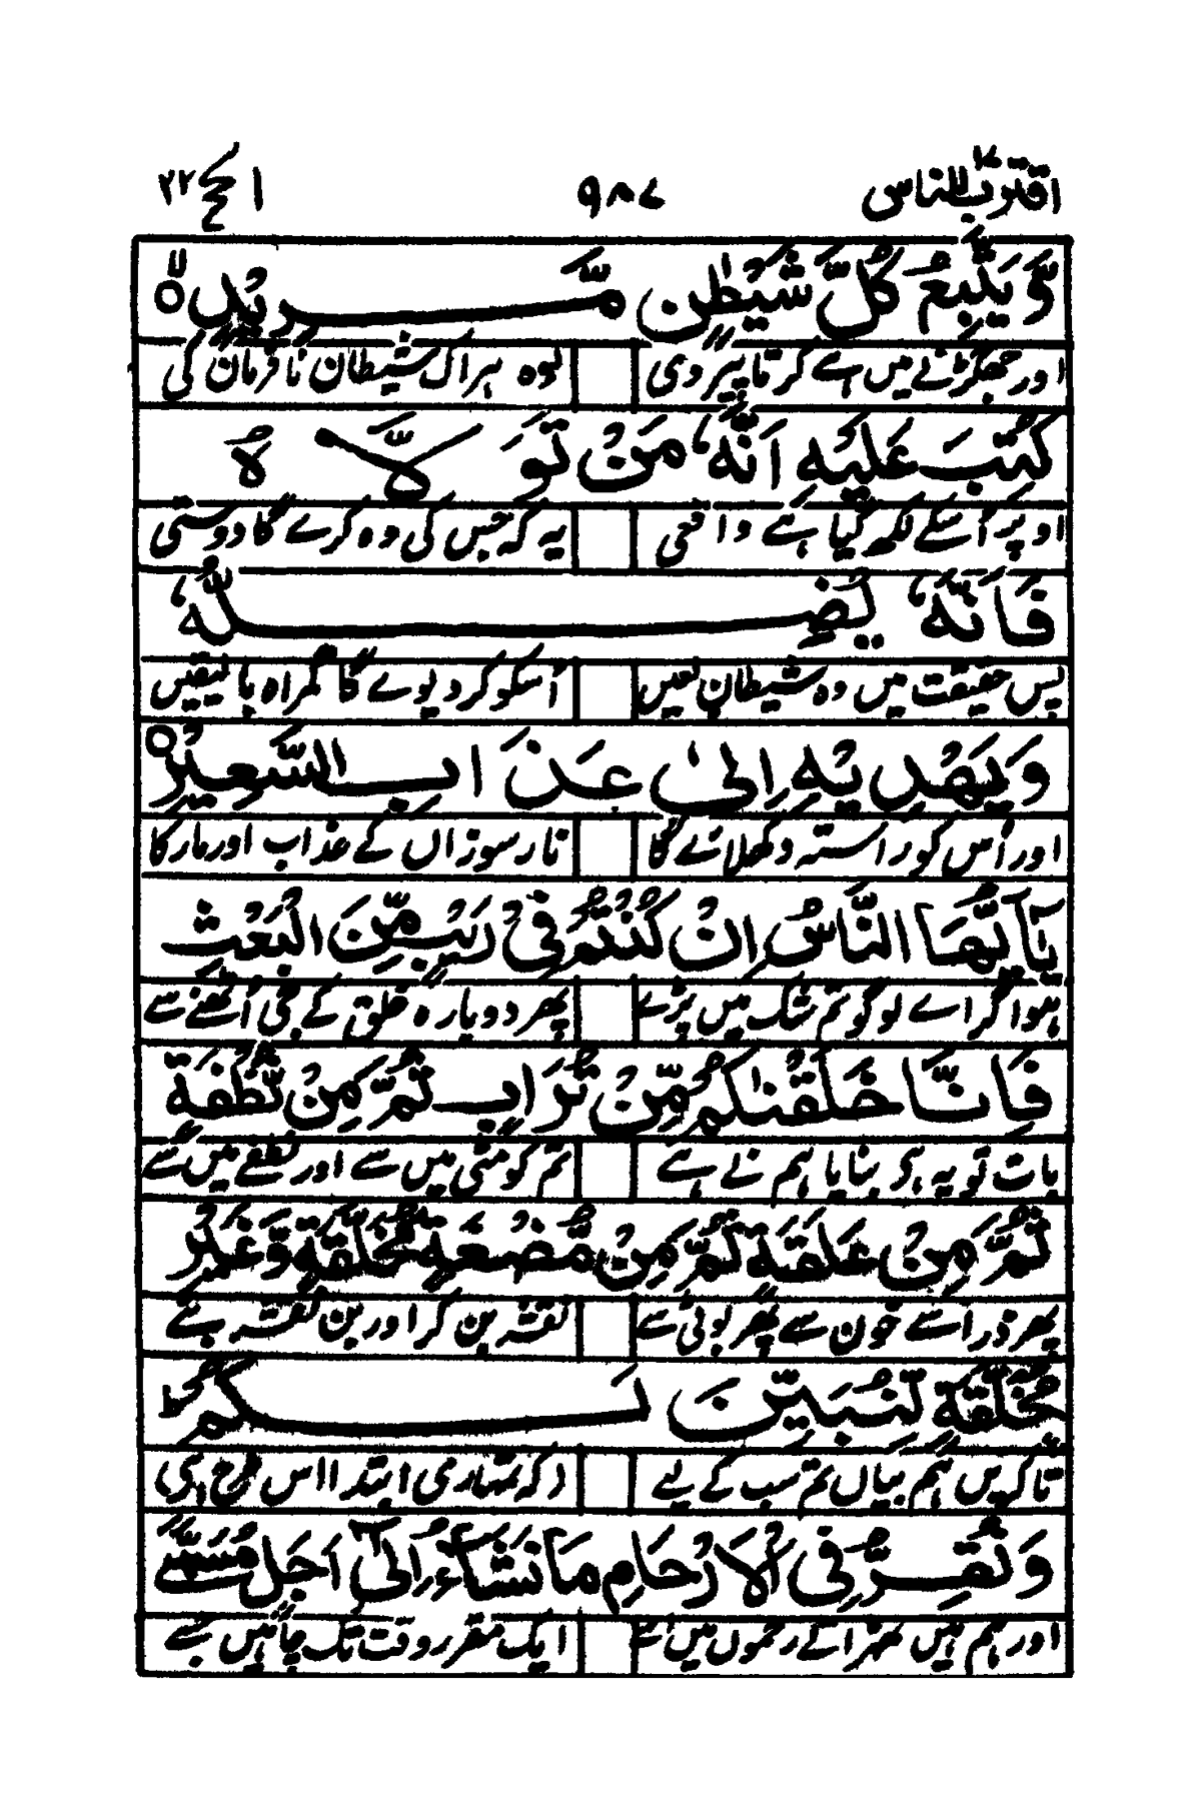 اقترب للناس ۱۷ ۹۸۷ الحج ۲۲
وَّيَتَّبِعُ كُلَّ شَيْطٰنٍ مَّرِيْدٍ ۝
اور جھگڑنے میں ہے کرتا پیروی لوہ ہر اک شیطان نافرمان کی
كُتِبَ عَلَيْهِ اَنَّهٗ مَنْ تَوَلَّاهُ
اوپر اسکے لکھ گیا ہے واقعی یہ کہ جس کی وہ کرے گا دوستی
فَاَنَّهٗ يُضِلُّهٗ
پس حقیقت میں وہ شیطانِ لعیں اُسکو کر دیوے گا گمراہ بالیقیں
وَيَهْدِيْهِ اِلٰى عَذَابِ السَّعِيْرِ ۝
اور اُس کو راستہ دکھلائے گا نار سوزاں کے عذاب اور مار کا
يٰٓاَيُّهَا النَّاسُ اِنْ كُنْتُمْ فِيْ رَيْبٍ مِّنَ الْبَعْثِ
ہو اگر اے لوگو تم شک میں پڑے پھر دوبارہ خلق کے جی اُٹھنے سے
فَاِنَّا خَلَقْنٰكُمْ مِّنْ تُرَابٍ ثُمَّ مِنْ نُّطْفَةٍ
بات تو یہ ہی بنایا ہم نے ہے تم کو مٹی میں سے اور نطفے میں سے
ثُمَّ مِنْ عَلَقَةٍ ثُمَّ مِنْ مُّضْغَةٍ مُّخَلَّقَةٍ وَّغَيْرِ
پھر ذرا سے خون سے پھر بوٹی سے نقشہ بن کر اور بن نقشہ بنے
مُخَلَّقَةٍ لِّنُبَيِّنَ لَكُمْ ؕ
تا کریں ہم بیاں تم سب کے لیے (کہ تمہاری ابتدا اس طرح ہی)
وَنُقِرُّ فِي الْاَرْحَامِ مَا نَشَآءُ اِلٰٓى اَجَلٍ مُّسَمًّى
اور ہم ہیں ٹھہراتے رحموں میں اسے ایک مقرر وقت تک چاہیں جسے